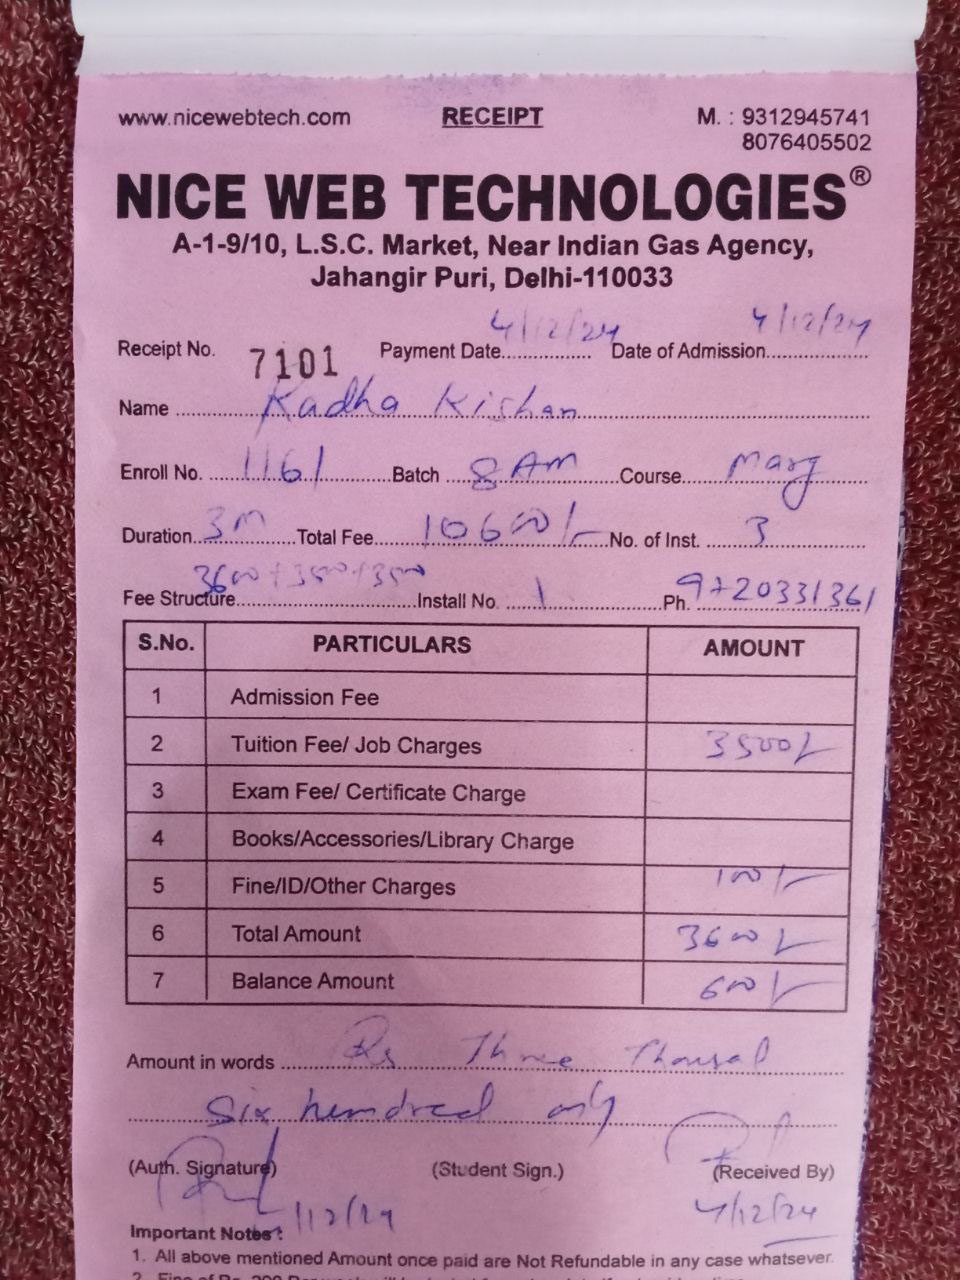 www.nicewebtech.com RECEIPT M. : 9312945741
8076405502
NICE WEB TECHNOLOGIES®
A-1-9/10, L.S.C. Market, Near Indian Gas Agency,
Jahangir Puri, Delhi-110033
Receipt No. 7101 Payment Date 4/12/24 Date of Admission 4/12/24
Name Radha Kishan
Enroll No. 1161 Batch 8 AM Course Marg
Duration 3m Total Fee 10600/- No. of Inst. 3
Fee Structure 3600 + 3500 + 3500 Install No. 1 Ph. 9720331361
S.No. PARTICULARS AMOUNT
1 Admission Fee
2 Tuition Fee/ Job Charges 3500/-
3 Exam Fee/ Certificate Charge
4 Books/Accessories/Library Charge
5 Fine/ID/Other Charges 100/-
6 Total Amount 3600/-
7 Balance Amount 600/-
Amount in words Rs Three Thousal
Six hundred only
(Auth. Signature) (Student Sign.) (Received By)
4/12/24
Important Notes :
1. All above mentioned Amount once paid are Not Refundable in any case whatsever.